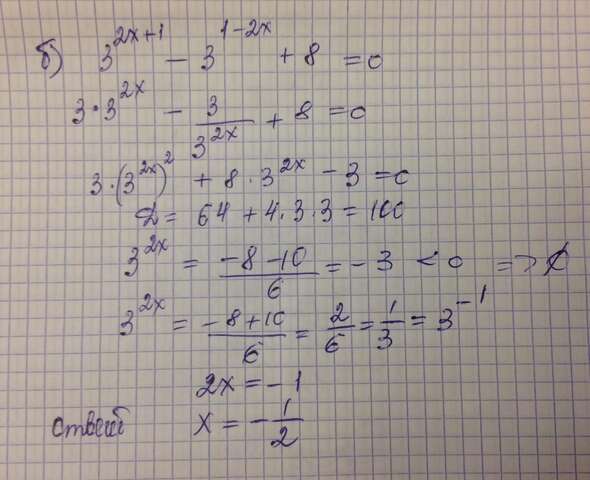 б) 3^{2x+1} - 3^{1-2x} + 8 = 0
3 · 3^{2x} - 3/3^{2x} + 8 = 0
3 · (3^{2x})^2 + 8 · 3^{2x} - 3 = 0
Д = 64 + 4 · 3 · 3 = 100
3^{2x} = (-8 - 10)/6 = -3 < 0 => ∅
3^{2x} = (-8 + 10)/6 = 2/6 = 1/3 = 3^{-1}
2x = -1
ответ x = -1/2